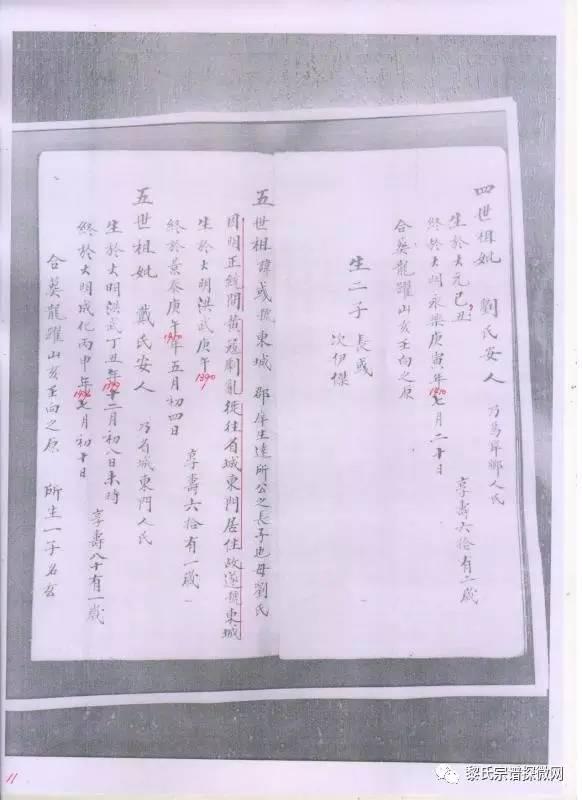 四世祖妣 劉氏安人 乃烏岸鄉人氏
生於大元己丑 享壽六拾有二歲
終於大明永樂庚寅年七月二十日
1410
合葬龍躍山亥壬向之原
生二子 長彧
次伊傑
五世祖諱彧號東城 郡庠生達所公之長子也母劉氏
因明正統間黃冠剿亂徙往省城東門居住故遂號東城
生於大明洪武庚午 享壽六拾有一歲
1390
終於景泰庚午年五月初四日
1450
五世祖妣 戴氏安人 乃省城東門人氏
生於大明洪武丁丑年十二月初八日未時 享壽八十有一歲
終於大明成化丙申年七月初十日
1476
合葬龍躍山亥壬向之原 所生一子名玄
11
黎氏宗谱探微网